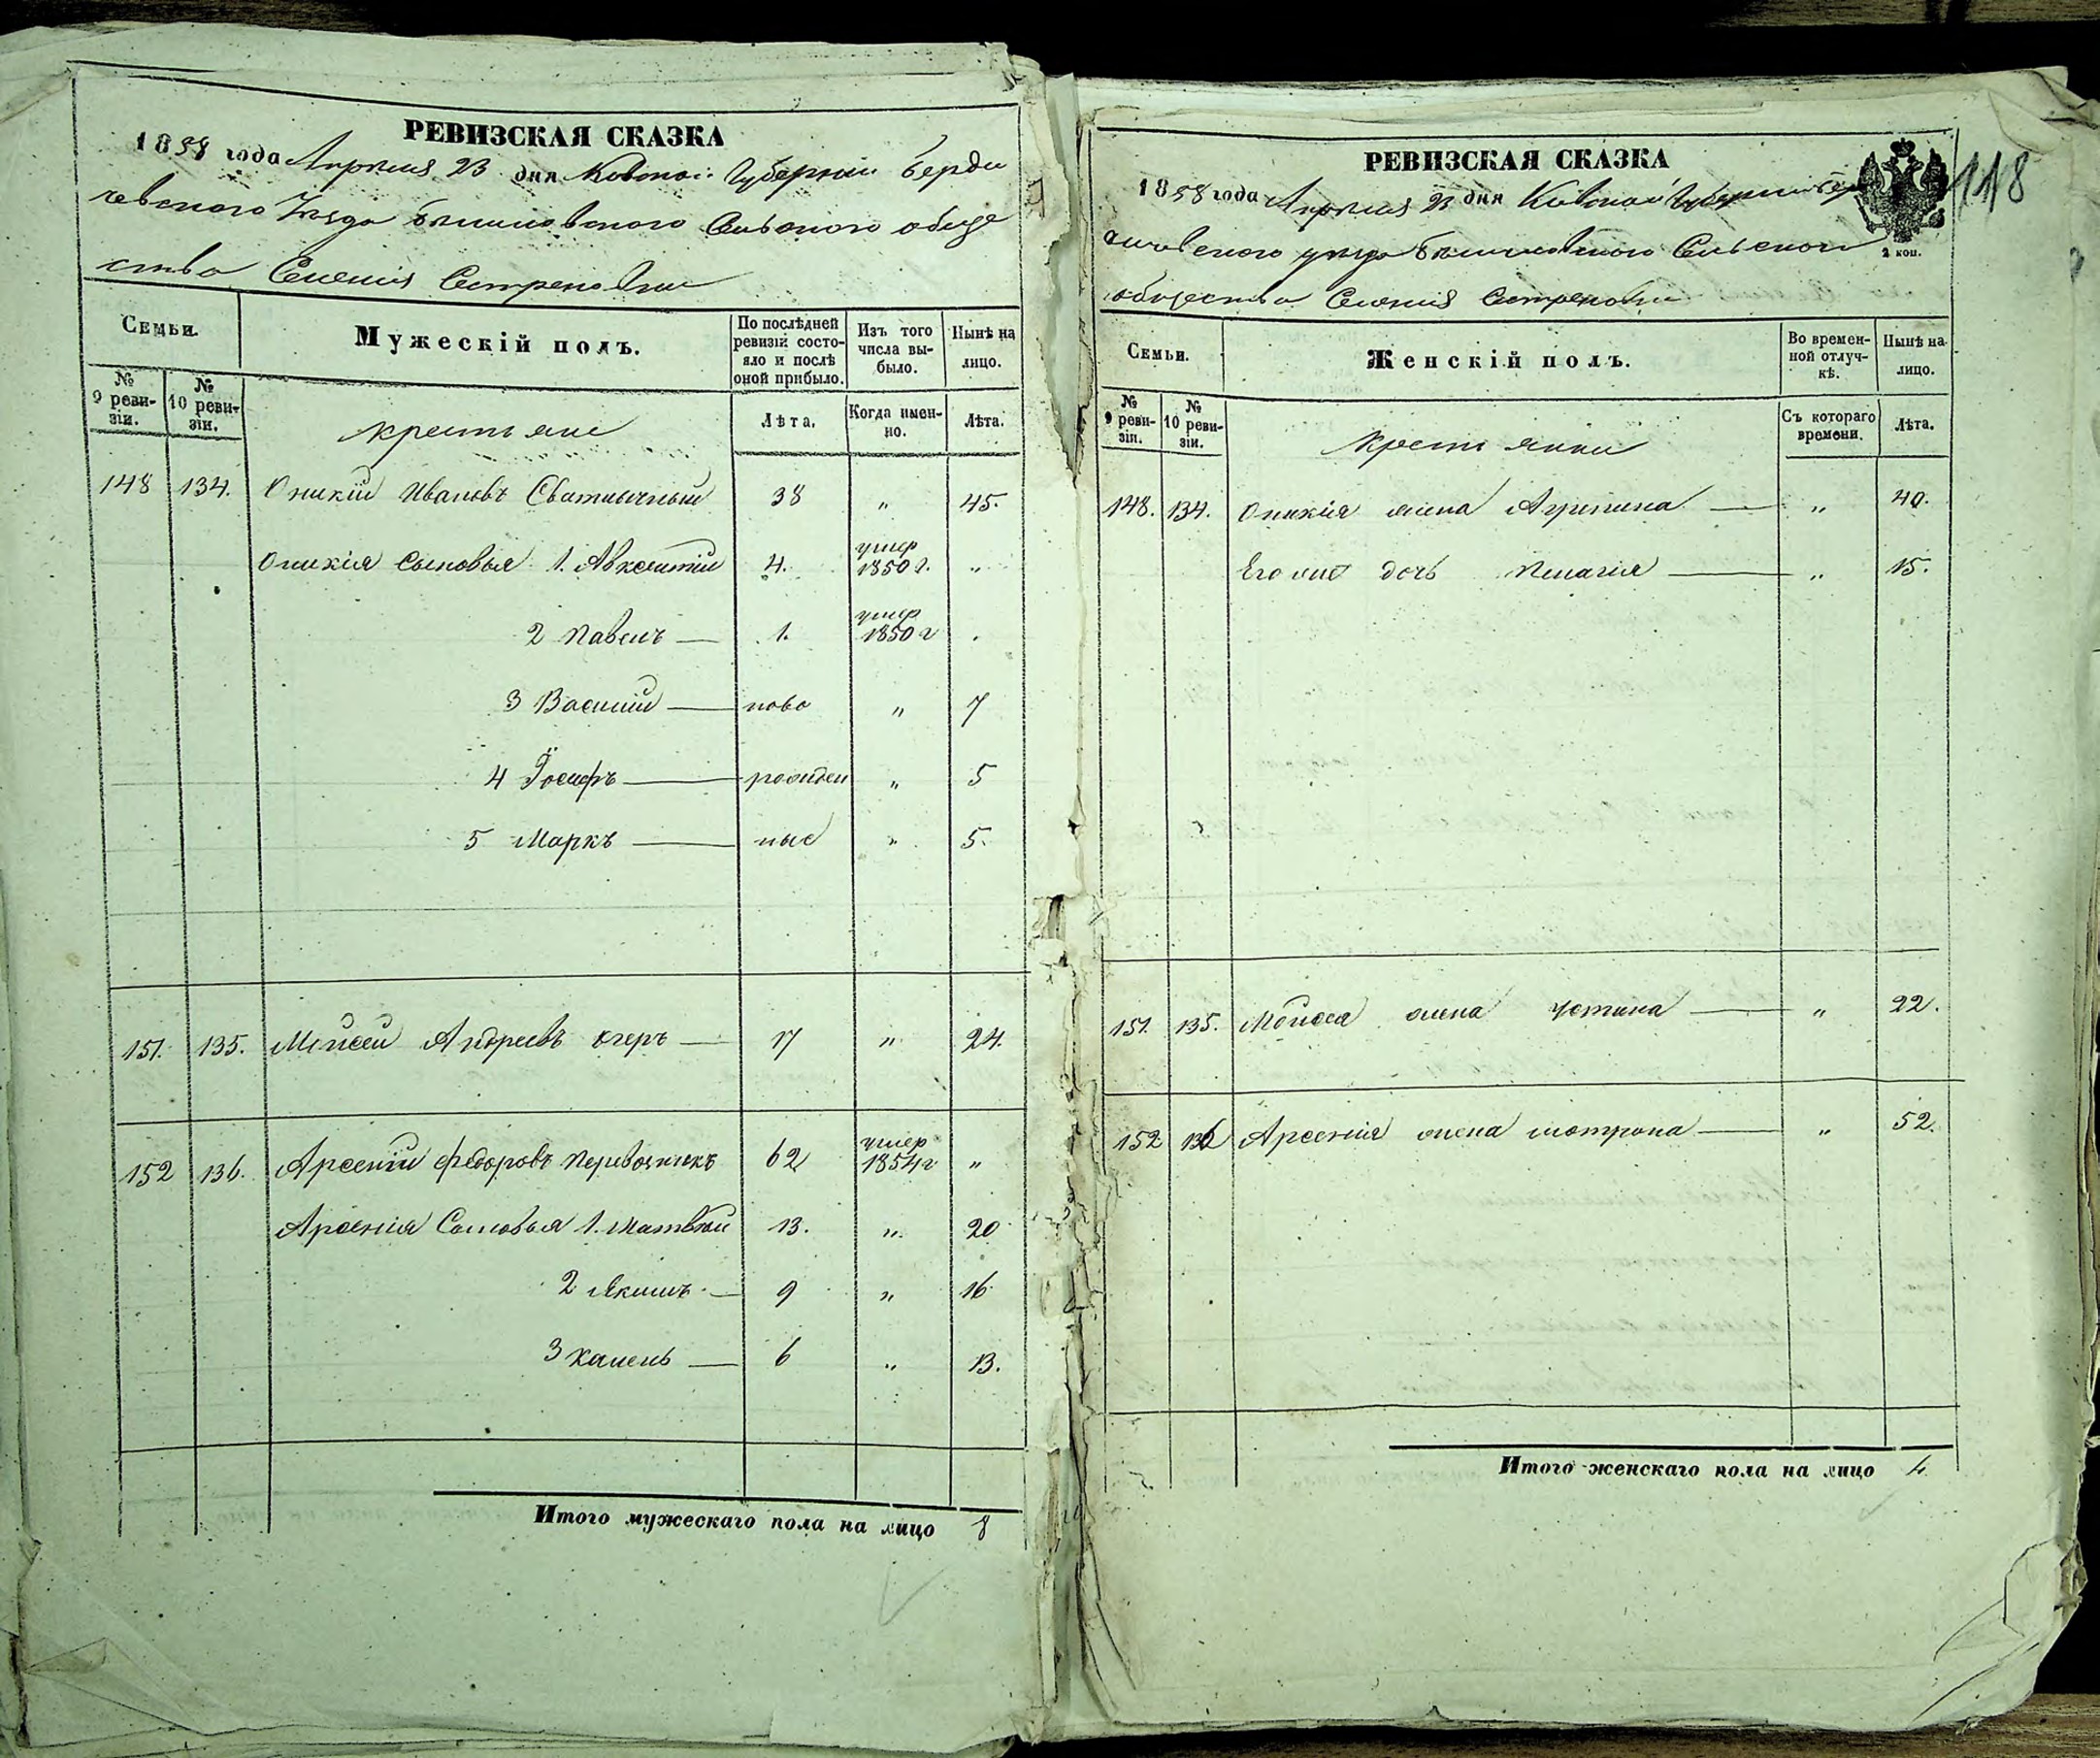 РЕВИЗСКАЯ СКАЗКА
1858 года Апреля 23 дня Киевской Губернии Берди
чевского уезда Сельского обще
ства Селения
Семьи.
Мужескій полъ.
По послѣдней ревизіи состояло и послѣ оной прибыло.
Изъ того числа выбыло.
Нынѣ на лицо.
№ 9 ревизіи.
№ 10 ревизіи.
крестьяне
Лѣта.
Когда именно.
Лѣта.
148 134. Оникій Ивановъ 38 " 45.
Оникія Сыновья 1. Авксентій 4. умер 1850 г. "
2 Павелъ 1. умер 1850 г
3 Василій ново " 7
4 Іосифъ рожден " 5
5 Маркъ ные " 5.
151. 135. Моисей Андреевъ 17 " 24.
152 136. Арсеній Федоровъ 62 умер 1854 г "
Арсенія Сыновья 1. Матвѣй 13. " 20
2 Якимъ 9 " 16
3 6 " 13.
Итого мужескаго пола на лицо 8
118
РЕВИЗСКАЯ СКАЗКА
1858 года Апреля 23 дня Киевской Губернии Бер
дичевского уезда Сельского
2 коп.
общества Селения
Семьи.
Женскій полъ.
Во временной отлучкѣ.
Нынѣ на лицо.
№ 9 ревизіи.
№ 10 ревизіи.
крестьянки
Съ котораго времени.
Лѣта.
148. 134. Оникія жена Агрипина " 40.
Его же дочь Пелагія " 15.
151. 135. Моисея жена Устина " 22.
152 136 Арсенія жена мотрона " 52.
Итого женскаго пола на лицо 4